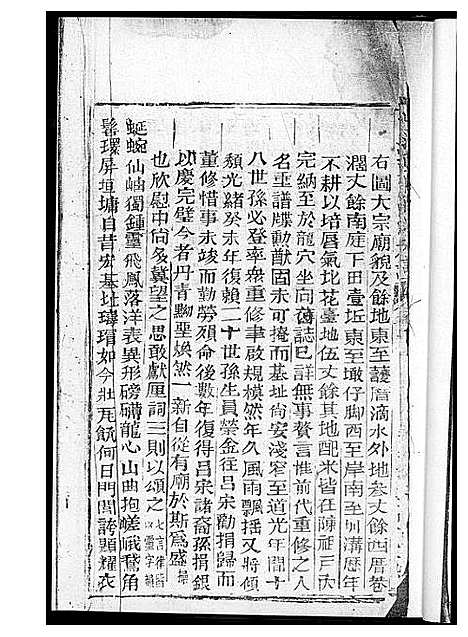 右圖大宗廟貌及餘地東至護厝滴水外地叁丈餘西厝巷
濶丈餘南庭下田壹坵東至墘仔脚西至岸南至圳溝歷年
不耕以培唇氣北花臺地伍丈餘其地配米皆在陳祖三大
完納至於龍穴坐向舊誌已詳無事贅言惟前代重修之人
名垂譜牒勳猷固未可掩而基址尚安淺窄至道光年間十
八世孫必登率衆重修聿啟規模然年久風雨飄搖又將傾
頹光緒癸未年復賴二十世孫生員榮金往呂宋勸捐歸而
董修惜事未竣而勤勞殞命後數年復得呂宋諸裔孫捐銀
以慶完璧今者丹青黝堊煥然一新自從有廟於斯為盛揉
也欣慰中尚多冀望之思敢獻厘詞三則以頌之七言律
以靈字韻
蜿蜒仙岫獨鍾靈飛鳳落洋表異形磅礴龍心山曲抱嵯峨鷄角
髻環屏垣墉自昔宏基址瑋瑁如今壯瓦瓴何日門閭誇顯耀衣